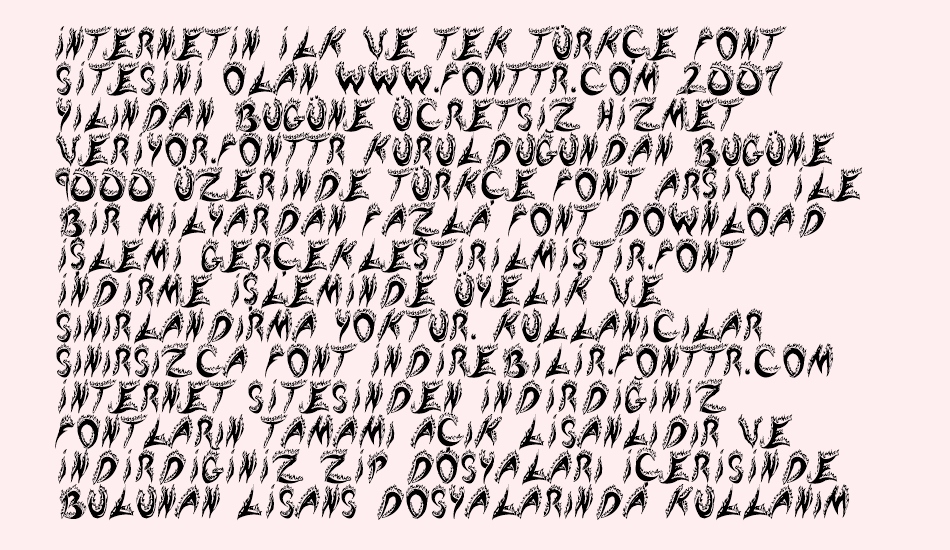 İNTERNETİN İLK VE TEK TÜRKÇE FONT
SİTESİNİ OLAN WWW.FONTTR.COM 2007
YILINDAN BUGÜNE ÜCRETSİZ HİZMET
VERİYOR.FONTTR KURULDUĞUNDAN BUGÜNE
9000 ÜZERİNDE TÜRKÇE FONT ARŞİVİ İLE
BİR MİLYARDAN FAZLA FONT DOWNLOAD
İŞLEMİ GERÇEKLEŞTİRİLMİŞTİR.FONT
İNDİRME İŞLEMİNDE ÜYELİK VE
SINIRLANDIRMA YOKTUR. KULLANICILAR
SINIRSIZCA FONT İNDİREBİLİR.FONTTR.COM
İNTERNET SİTESİNDEN İNDİRDİĞİNİZ
FONTLARIN TAMAMI AÇIK LİSANLIDIR VE
İNDİRDİĞİNİZ ZİP DOSYALARI İÇERİSİNDE
BULUNAN LİSANS DOSYALARINDA KULLANIM